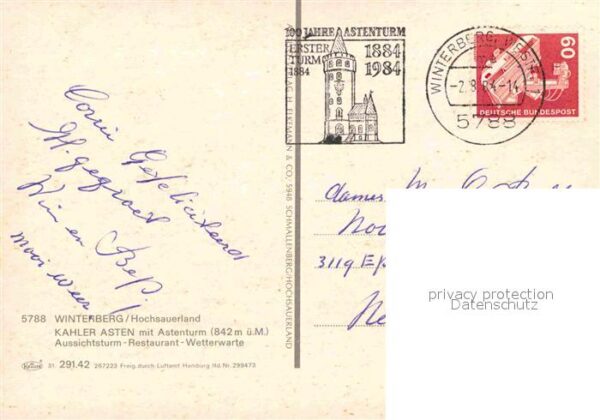 100 JAHRE ASTENTURM
ERSTER
TURM
1884
1884
1984
WINTERBERG, WESTF 1
-2.8.84-14
5788
60
DEUTSCHE BUNDESPOST
VERLAG H. & CO., 5948 SCHMALLENBERG/HOCHSAUERLAND
Corrie Gefeliciteerd
gegroet
Wim en Bep
mooi weer
dames M.
3119 E
privacy protection
Datenschutz
5788 WINTERBERG/Hochsauerland
KAHLER ASTEN mit Astenturm (842 m ü.M.)
Aussichtsturm-Restaurant-Wetterwarte
31 291.42 267223 Freig. durch Luftamt Hamburg Nd. Nr. 299473